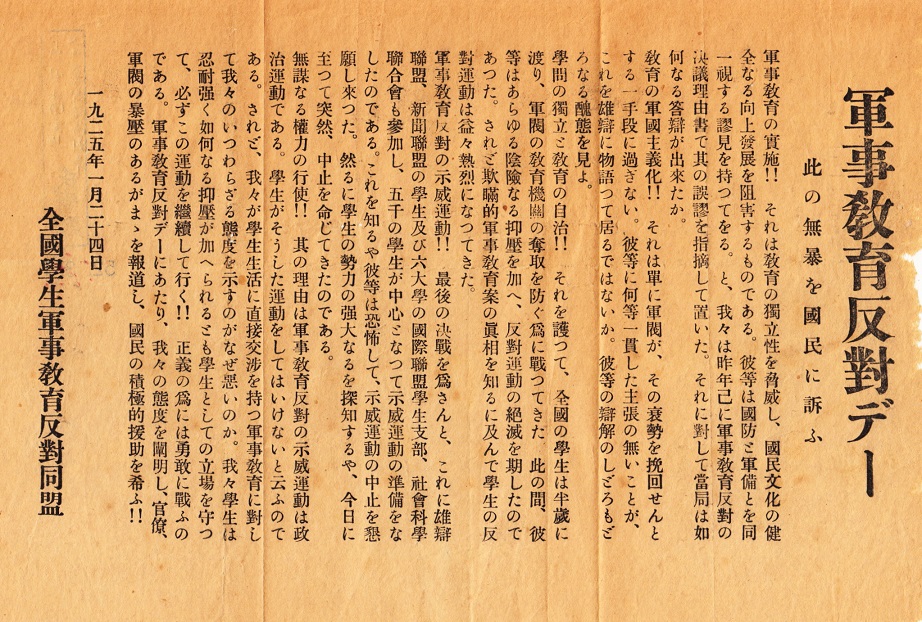 軍事敎育反對デー
此の無暴を國民に訴ふ
軍事敎育の實施!! それは敎育の獨立性を脅威し、國民文化の健
全なる向上發展を阻害するものである。彼等は國防と軍備とを同
一視する謬見を持つてをる。と、我々は昨年己に軍事敎育反對の
決議理由書で其の誤謬を指摘して置いた。それに對して當局は如
何なる答辯が出來たか。
敎育の軍國主義化!! それは單に軍閥が、その衰勢を挽回せんと
する一手段に過ぎない。彼等に何等一貫した主張の無いことが、
これを雄辯に物語つて居るではないか。彼等の辯解のしどろもど
ろなる醜態を見よ。
學問の獨立と敎育の自治!! それを護つて、全國の學生は半歲に
渡り、軍閥の敎育機關の奪取を防ぐ爲に戰つてきた 此の間、彼
等はあらゆる陰險なる抑壓を加へ、反對運動の絕滅を期したので
あつた。されど欺瞞的軍事敎育案の眞相を知るに及んで學生の反
對運動は益々熱烈になつてきた。
軍事敎育反對の示威運動!! 最後の決戰を爲さんと、これに雄辯
聯盟、新聞聯盟の學生及び六大學の國際聯盟學生支部、社會科學
聯合會も參加し、五千の學生が中心となつて示威運動の準備をな
したのである。これを知るや彼等は恐怖して、示威運動の中止を懇
願し來つた。然るに學生の勢力の强大なるを探知するや、今日に
至つて突然、中止を命じてきたのである。
無謀なる權力の行使!! 其の理由は軍事敎育反對の示威運動は政
治運動である。學生がそうした運動をしてはいけないと云ふので
ある。されど、我々が學生生活に直接交涉を持つ軍事敎育に對し
て我々のいつわらざる態度を示すのがなぜ悪いのか。我々學生は
忍耐强く如何なる抑壓が加へられるとも學生としての立場を守つ
て、必ずこの運動を繼續して行く!! 正義の爲には勇敢に戰ふの
である。軍事敎育反對デーにあたり、我々の態度を闡明し、官僚、
軍閥の暴壓のあるがまゝを報道し、國民の積極的援助を希ふ!!
一九二五年一月二十四日
全國學生軍事敎育反對同盟